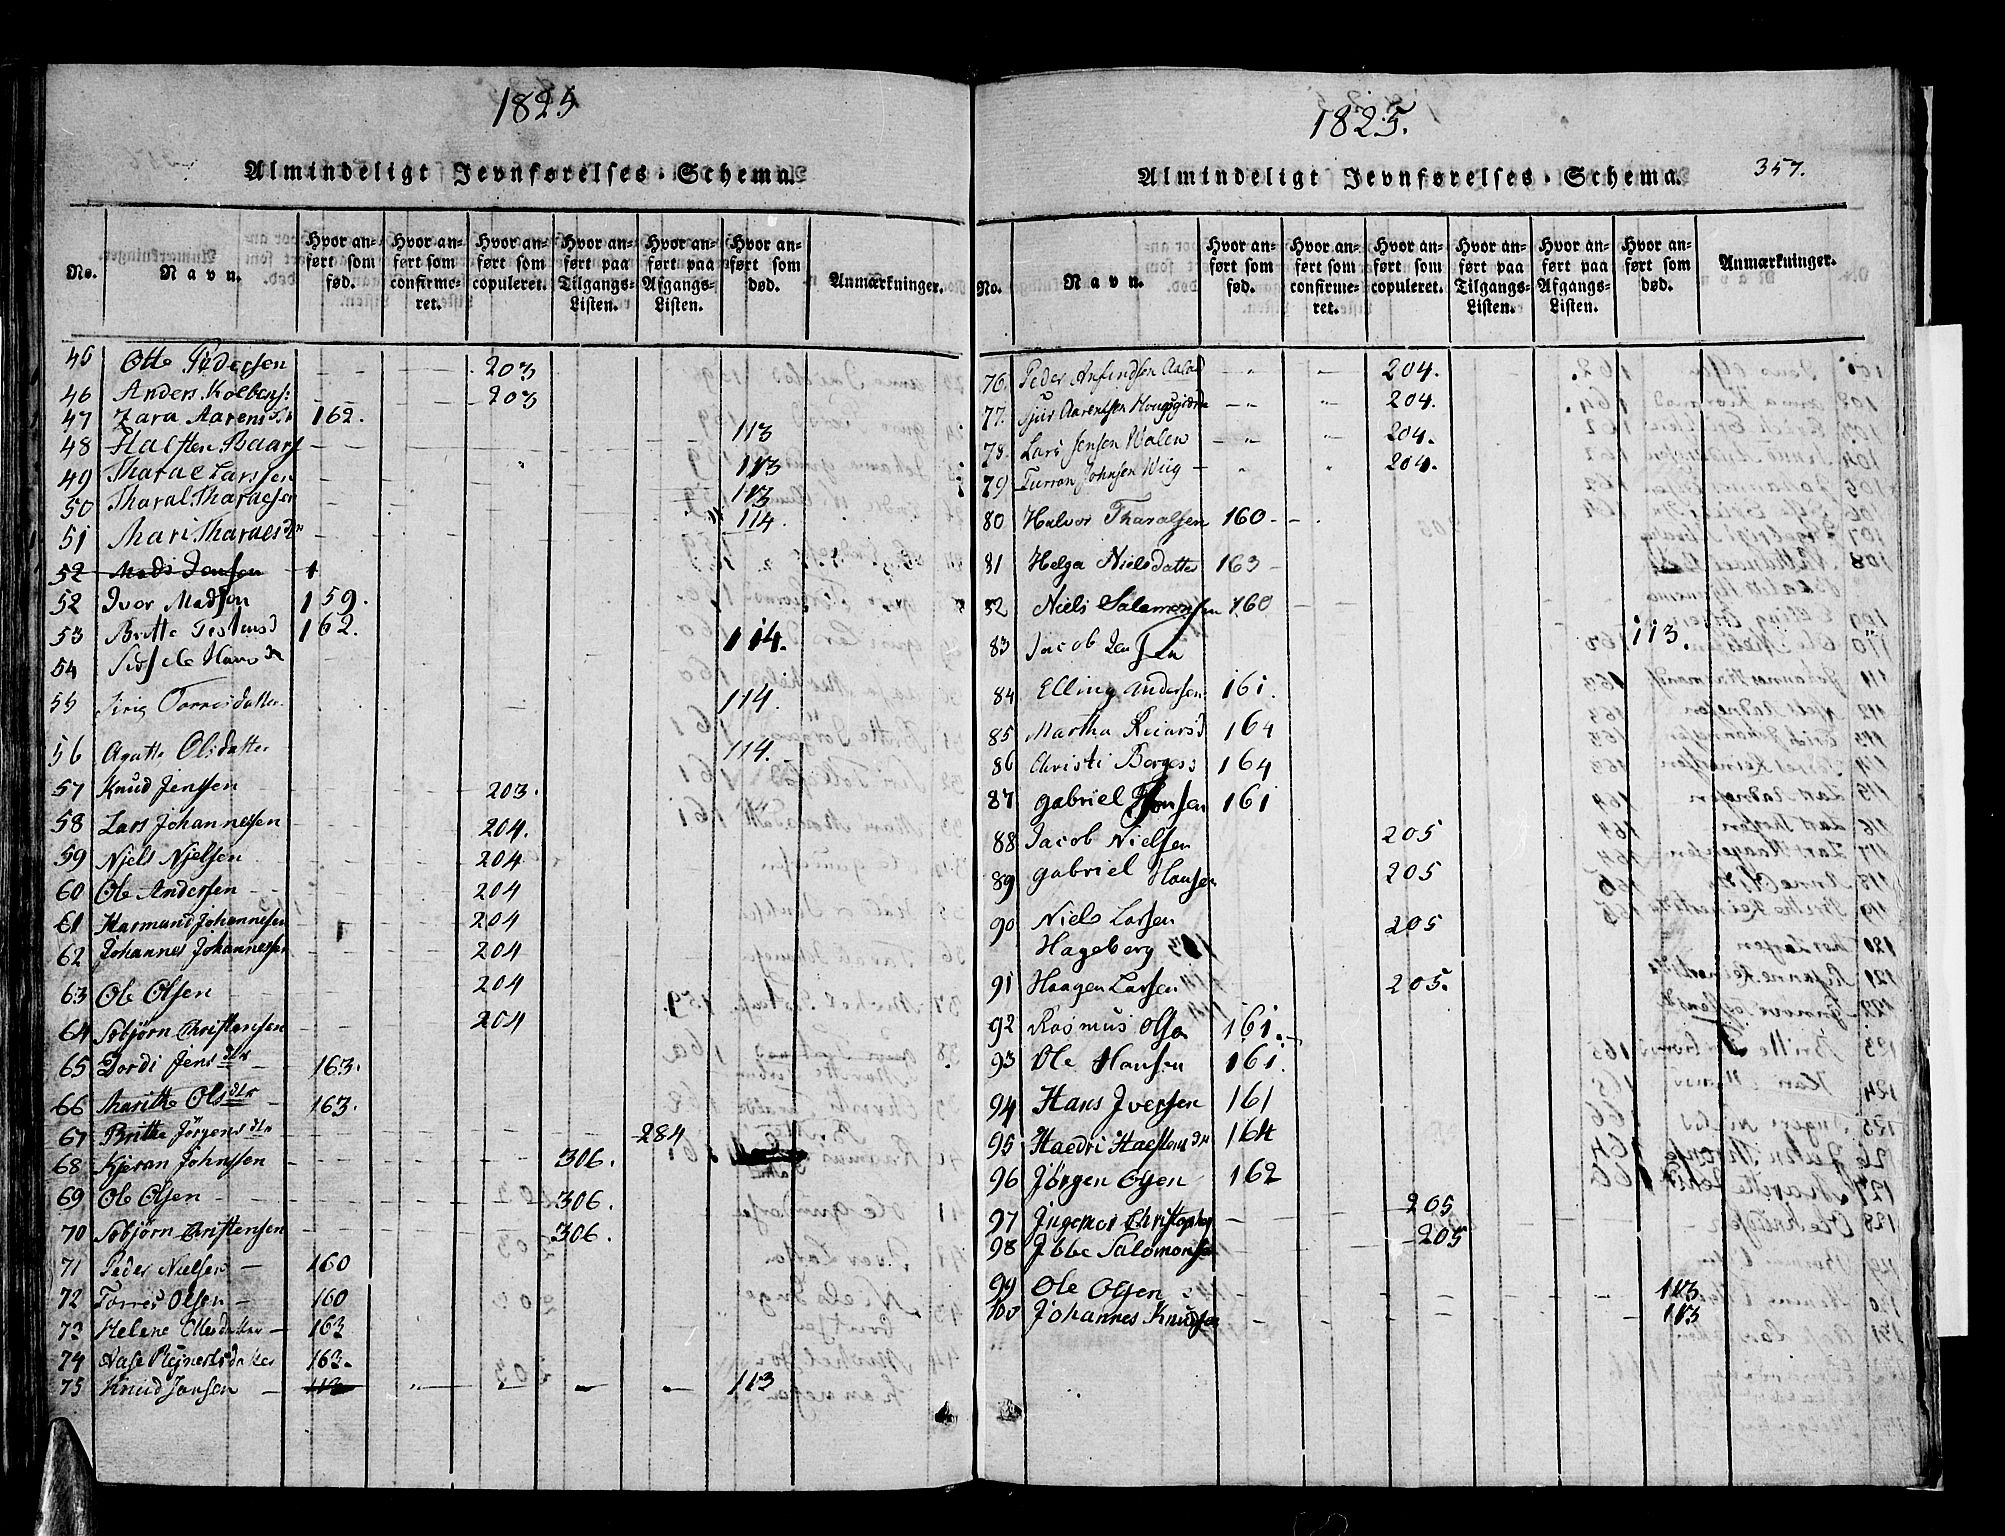 1825
Almindeligt Jevnførelses-Schema.
No.
Navn.
Hvor anført som fød.
Hvor anført som confirmeret.
Hvor anført som copuleret.
Hvor anført paa Tilgangs-Listen.
Hvor anført paa Afgangs-Listen.
Hvor anført som død.
Anmærkninger.
45 Otte Pedersen 203
46 Anders Kolbens: 203
47 Zara Aarensdr 162.
48 Halsten Baars 113
49 Tharal Larssen 113
50 Tharal Tharaldsen 113
51 Mari Tharalsdr 114.
52 Mads Jensen
52 Ivor Madsen 159.
53 Britte 162.
54 114.
55 Sirig Torresdatter 114.
56 Agatte Olsdatter 114.
57 Knud Jenssen 203.
58 Lars Johannessen 204.
59 Njels Njelsen 204
60 Ole Andersen 204
61 Harmand Johannesen 204
62 Johannes Johannessen 204
63 Ole Olsen 204
64 Sebjørn Christensen 204
65 Dordi Jensdtr 163.
66 Maritte Olsdtr 163.
67 Britte Jörgensdtr 284
68 Kjeran Johnssen 306.
69 Ole Olsen 306.
70 Sebjørn Christensen 306.
71 Peder Nielsen 160
72 Torres Olsen 160
73 Helene Ellesdatter 163
74 Aase Rejnertsdatter 163.
75 Knud Jonsen 113 113
1825.
Almindeligt Jevnførelses-Schema.
357.
No.
Navn.
Hvor anført som fød.
Hvor anført som confirmeret.
Hvor anført som copuleret.
Hvor anført paa Tilgangs-Listen.
Hvor anført paa Afgangs-Listen.
Hvor anført som død.
Anmærkninger.
76. Peder Anfindsen 204.
77. Sjur Aarentsen 204.
78. Lars Jensen Walen 204.
79 Turron Johnsen Wiig 204.
80 Halvor Tharalsen 160
81 Helga Nielsdatter 163
82 Niels Salamonsen 160
83 Jacob Jensen 113.
84 Elling Andersen 161.
85 Martha Reiarsd 164
86 Christi Borgess 164
87 Gabriel Hansen 161
88 Jacob Nielsen 205
89 Gabriel Hansen 205
90 Niels Larsen
Hageberg 205
91 Haagen Larsen 205.
92 Rasmus Olsen 161.
93 Ole Hansen 161.
94 Hans Iversen 161
95 Haldri Halstensdr 164
96 Jörgen Olsen 162
97 Ingemor Christophers 205
98 Ibbe Salomonsen 205
99 Ole Olsen 113
100 Johannes Knudsen 113